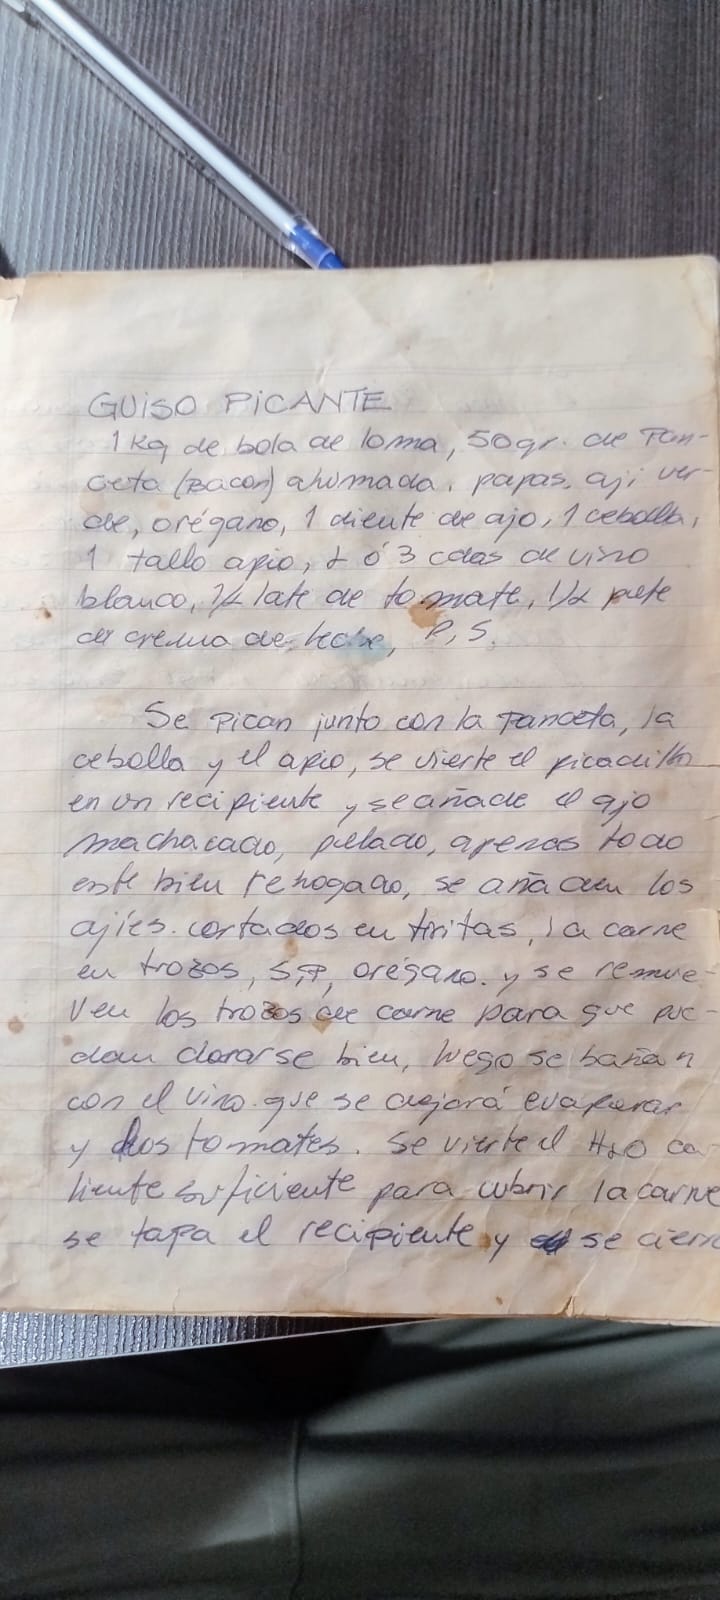 GUISO PICANTE
1 kg de bola de loma, 50 gr. de Pan-
ceta (Bacon) ahumada. papas, ají ver-
de, orégano, 1 diente de ajo, 1 cebolla,
1 tallo apio, 2 ó 3 cdas de vino
blanco, 1/2 late de tomate, 1/2 pote
de crema de leche, P, S.
Se pican junto con la Panceta, la
cebolla y el apio, se vierte el picadillo
en un recipiente y se añade el ajo
machacado, pelado, apenas todo
este bien rehogado, se añaden los
ajíes. cortados en tiritas, la carne
en trozos, S,P, orégano. y se remue-
ven los trozos de carne para que pue-
dan dorarse bien, luego se bañan
con el vino. que se dejará evaporar
y los tomates. Se vierte el H2O ca-
liente suficiente para cubrir la carne
se tapa el recipiente y se cierr